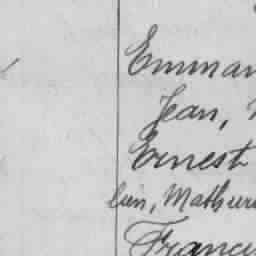 Emman
Jean,
Ernest
lin, Mathuri
Franci